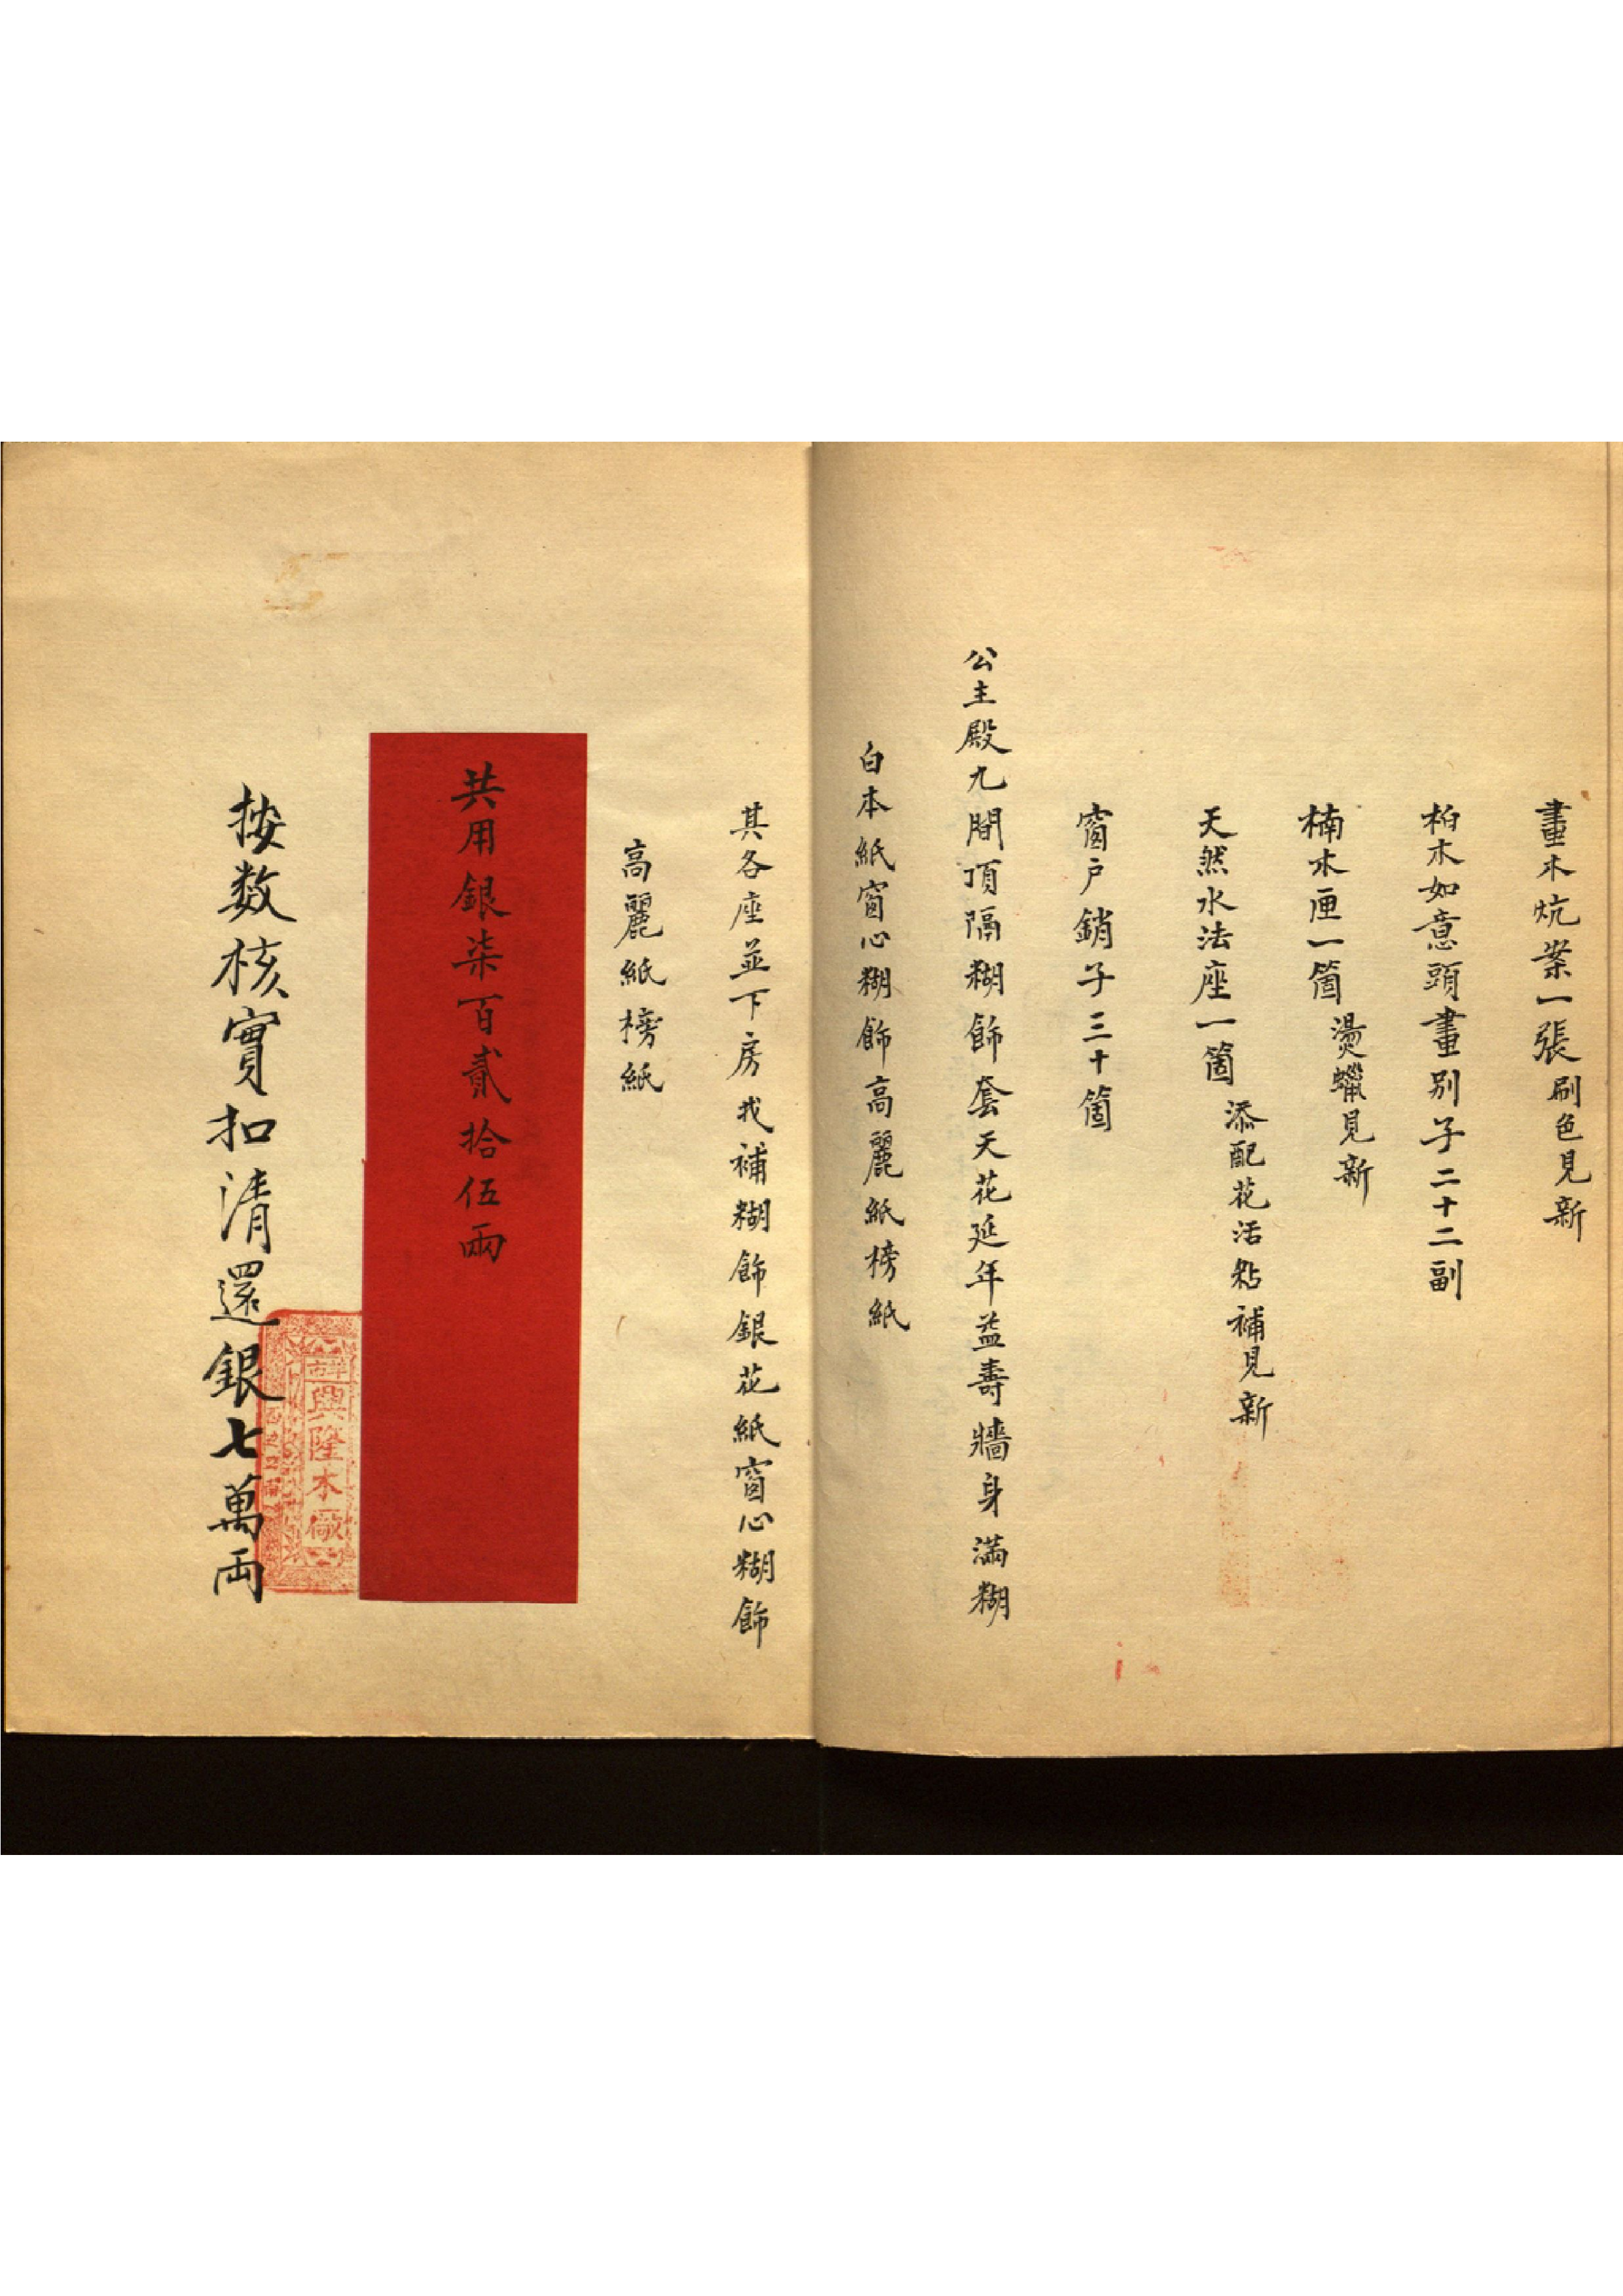 畫木炕案一張刷色見新
柏木如意頭畫别子二十二副
楠木匣一箇燙蠟見新
天然水法座一箇添配花活粘補見新
窗户銷子三十箇
公主殿九間頂隔糊飾套天花延年益壽牆身滿糊
白本紙窗心糊飾高麗紙榜紙
其各座並下房找補糊飾銀花紙窗心糊飾
高麗紙榜紙
共用銀柒百貳拾伍兩
按数核實扣清還銀七萬両
興隆木廠